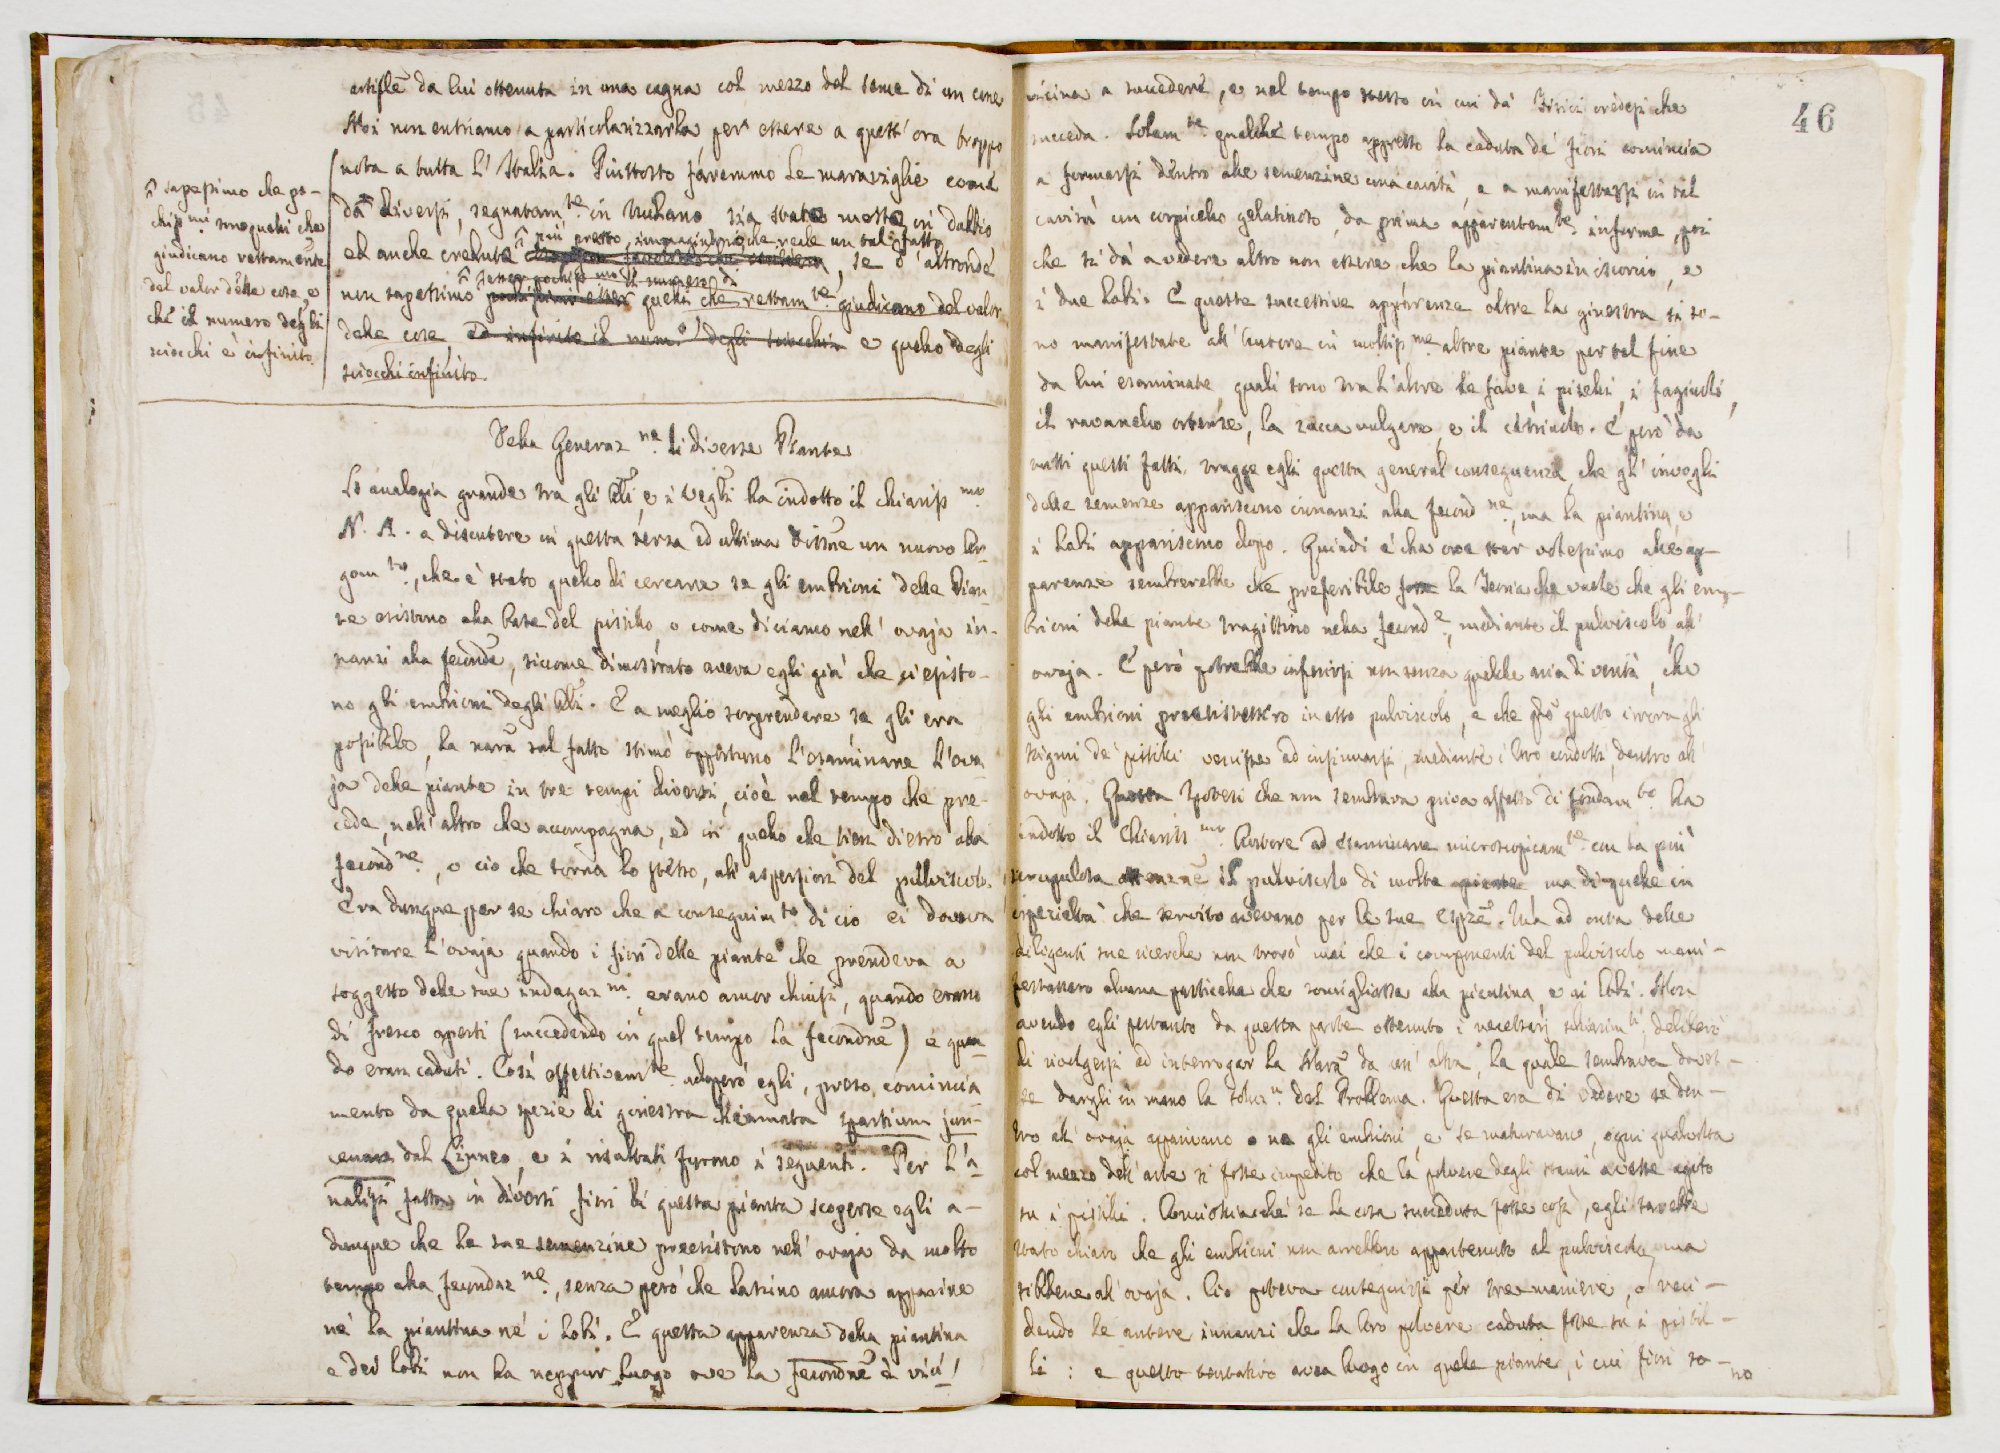 artifle da lui ottenuta in una cagna col mezzo del seme di un cane
Noi non entriamo a particolarizzarla, per essere a quest'ora troppo
nota a tutta l'Italia. Piuttosto faremmo le maraviglie come
da diversi, segnatam.te in Milano, sia stata messa in dubbio
più presto, immaginario che reale un tal fatto
ed anche creduta , se d'altronde
esser pochiss.mo il numero di
non sapessimo pochissimi esser quelli che rettam.te giudicano del valor
delle cose, ed infinito il num.o degli sciocchi e quello degli
sciocchi infinito.
sapessimo che po-
chiss.mi son quelli che
giudicano rettamente
del valor delle cose, e
che il numero degli
sciocchi è infinito.
Della Generaz.ne di diverse Piante
La analogia grande tra gli Ali, e i Vegli ha indotto il chiariss.mo
N. A. a discutere in questa terza ed ultima Dissne un nuovo Ar-
gom.to, che è stato quello di cercare se gli embrioni delle Pian-
te esistono alla base del pistillo, o come diciamo nell'ovaja in-
nanzi alla fecondne, siccome dimostrato aveva egli già che ci esisto-
no gli embrioni degli Ali. E a meglio sorprendere se gli era
possibile, la nara sul fatto stimò opportuno l'esaminare l'ova-
ja delle piante in tre tempi diversi, cioè nel tempo che pre-
cede, nell'altro che accompagna, ed in quello che tien dietro alla
fecond.ne, o ciò che torna lo stesso, all'aspersion del pulviscolo.
Era dunque per se chiaro che a conseguim.to di ciò ei doveva
visitare l'ovaja quando i fiori delle piante che prendeva a
soggetto delle sue indagaz.ni erano ancor chiusi, quando erano
di fresco aperti (succedendo in quel tempo la fecondne) e quan-
do eran caduti. Così effettivam.te adoperò egli, preso comincia-
mento da quella spezie di ginestra chiamata spartium jun-
ceum dal Linneo, e i risultati furono i seguenti. Per l'a-
nalisi fatta in diversi fiori di questa pianta scoperse egli a-
dunque che le sue semenzine preesistono nell'ovaja da molto
tempo alla fecondaz.ne, senza però che lascino ancora apparire
nè la piantina nè i lobi. E questa apparenza della piantina
e dei lobi non ha neppur luogo ove la fecondne è vici-
46
vicina a succedere, e nel tempo stesso in cui da' Fisici credesi che
succeda. Solam.te qualche tempo appresso la caduta de' fiori comincia
a formarsi dentro alle semenzine una cavità, e a manifestarsi in tal
cavità un corpicello gelatinoso, da prima apparentem.te informe, poi
che si dà a vedere altro non essere che la piantina in iscorcio, e
i due lobi. E queste successive apparenze oltre la ginestra si so-
no manifestate all'Autore in moltiss.me altre piante per tal fine
da lui esaminate, quali sono tra l'altre le fave, i piselli, i fagiuoli,
il ravanello ortense, la zucca vulgare, e il citriuolo. E però da
tutti questi fatti, tragge egli questa general conseguenza, che gl'invogli
delle semenze appariscono innanzi alla fecond.ne, ma la piantina, e
i lobi appariscono dopo. Quindi è che ove star volessimo alle ap-
parenze sembrerebbe che preferibile fosse la Teoria che vuole che gli em-
brioni delle piante tragittino nella fecond.e, mediante il pulviscolo, all'
ovaja. E però potrebbe inferirsi non senza qualche aria di verità, che
gli embrioni preesistessero in esso pulviscolo, e che po' questo irrora gli
stigmi de' pistilli venisse ad insinuarsi, mediante i loro condotti, dentro all'
ovaja. Questa Ipotesi che non sembrava priva affatto di fondam.to ha
indotto il Chiariss.mo Autore ad esaminare microscopicam.te con la più
scrupolosa attenzne il pulviscolo di molte piante ma di quelle in
ispezieltà che servito avevano per le sue Esprze. Ma ad onta delle
diligenti sue ricerche non trovò mai che i componenti del pulviscolo mani-
festassero alcuna particella che somigliasse alla piantina, e ai lobi. Non
avendo egli pertanto da questa parte ottenuto i necessarj schiarim.ti, deliberò
di rivolgersi ad interrogar la Nara da un'altra, la quale sembrava doves-
se dargli in mano la soluz.n del Problema. Questa era di vedere se den-
tro all'ovaja apparivano o no gli embrioni, e se maturavano, ogni qualvolta
col mezzo dell'arte si fosse impedito che la polvere degli stami avesse agito
su i pistilli. Conciosiacché se la cosa succeduta fosse così, egli sarebbe
stato chiaro che gli embrioni non avrebbero appartenuto al pulviscolo, ma
sibbene all'ovaja. Ciò poteva conseguirsi per tre maniere, o reci-
dendo le antere innanzi che la loro polvere caduta fosse su i pistil-
li: e questo tentativo avea luogo in quelle piante, i cui fiori so-
no